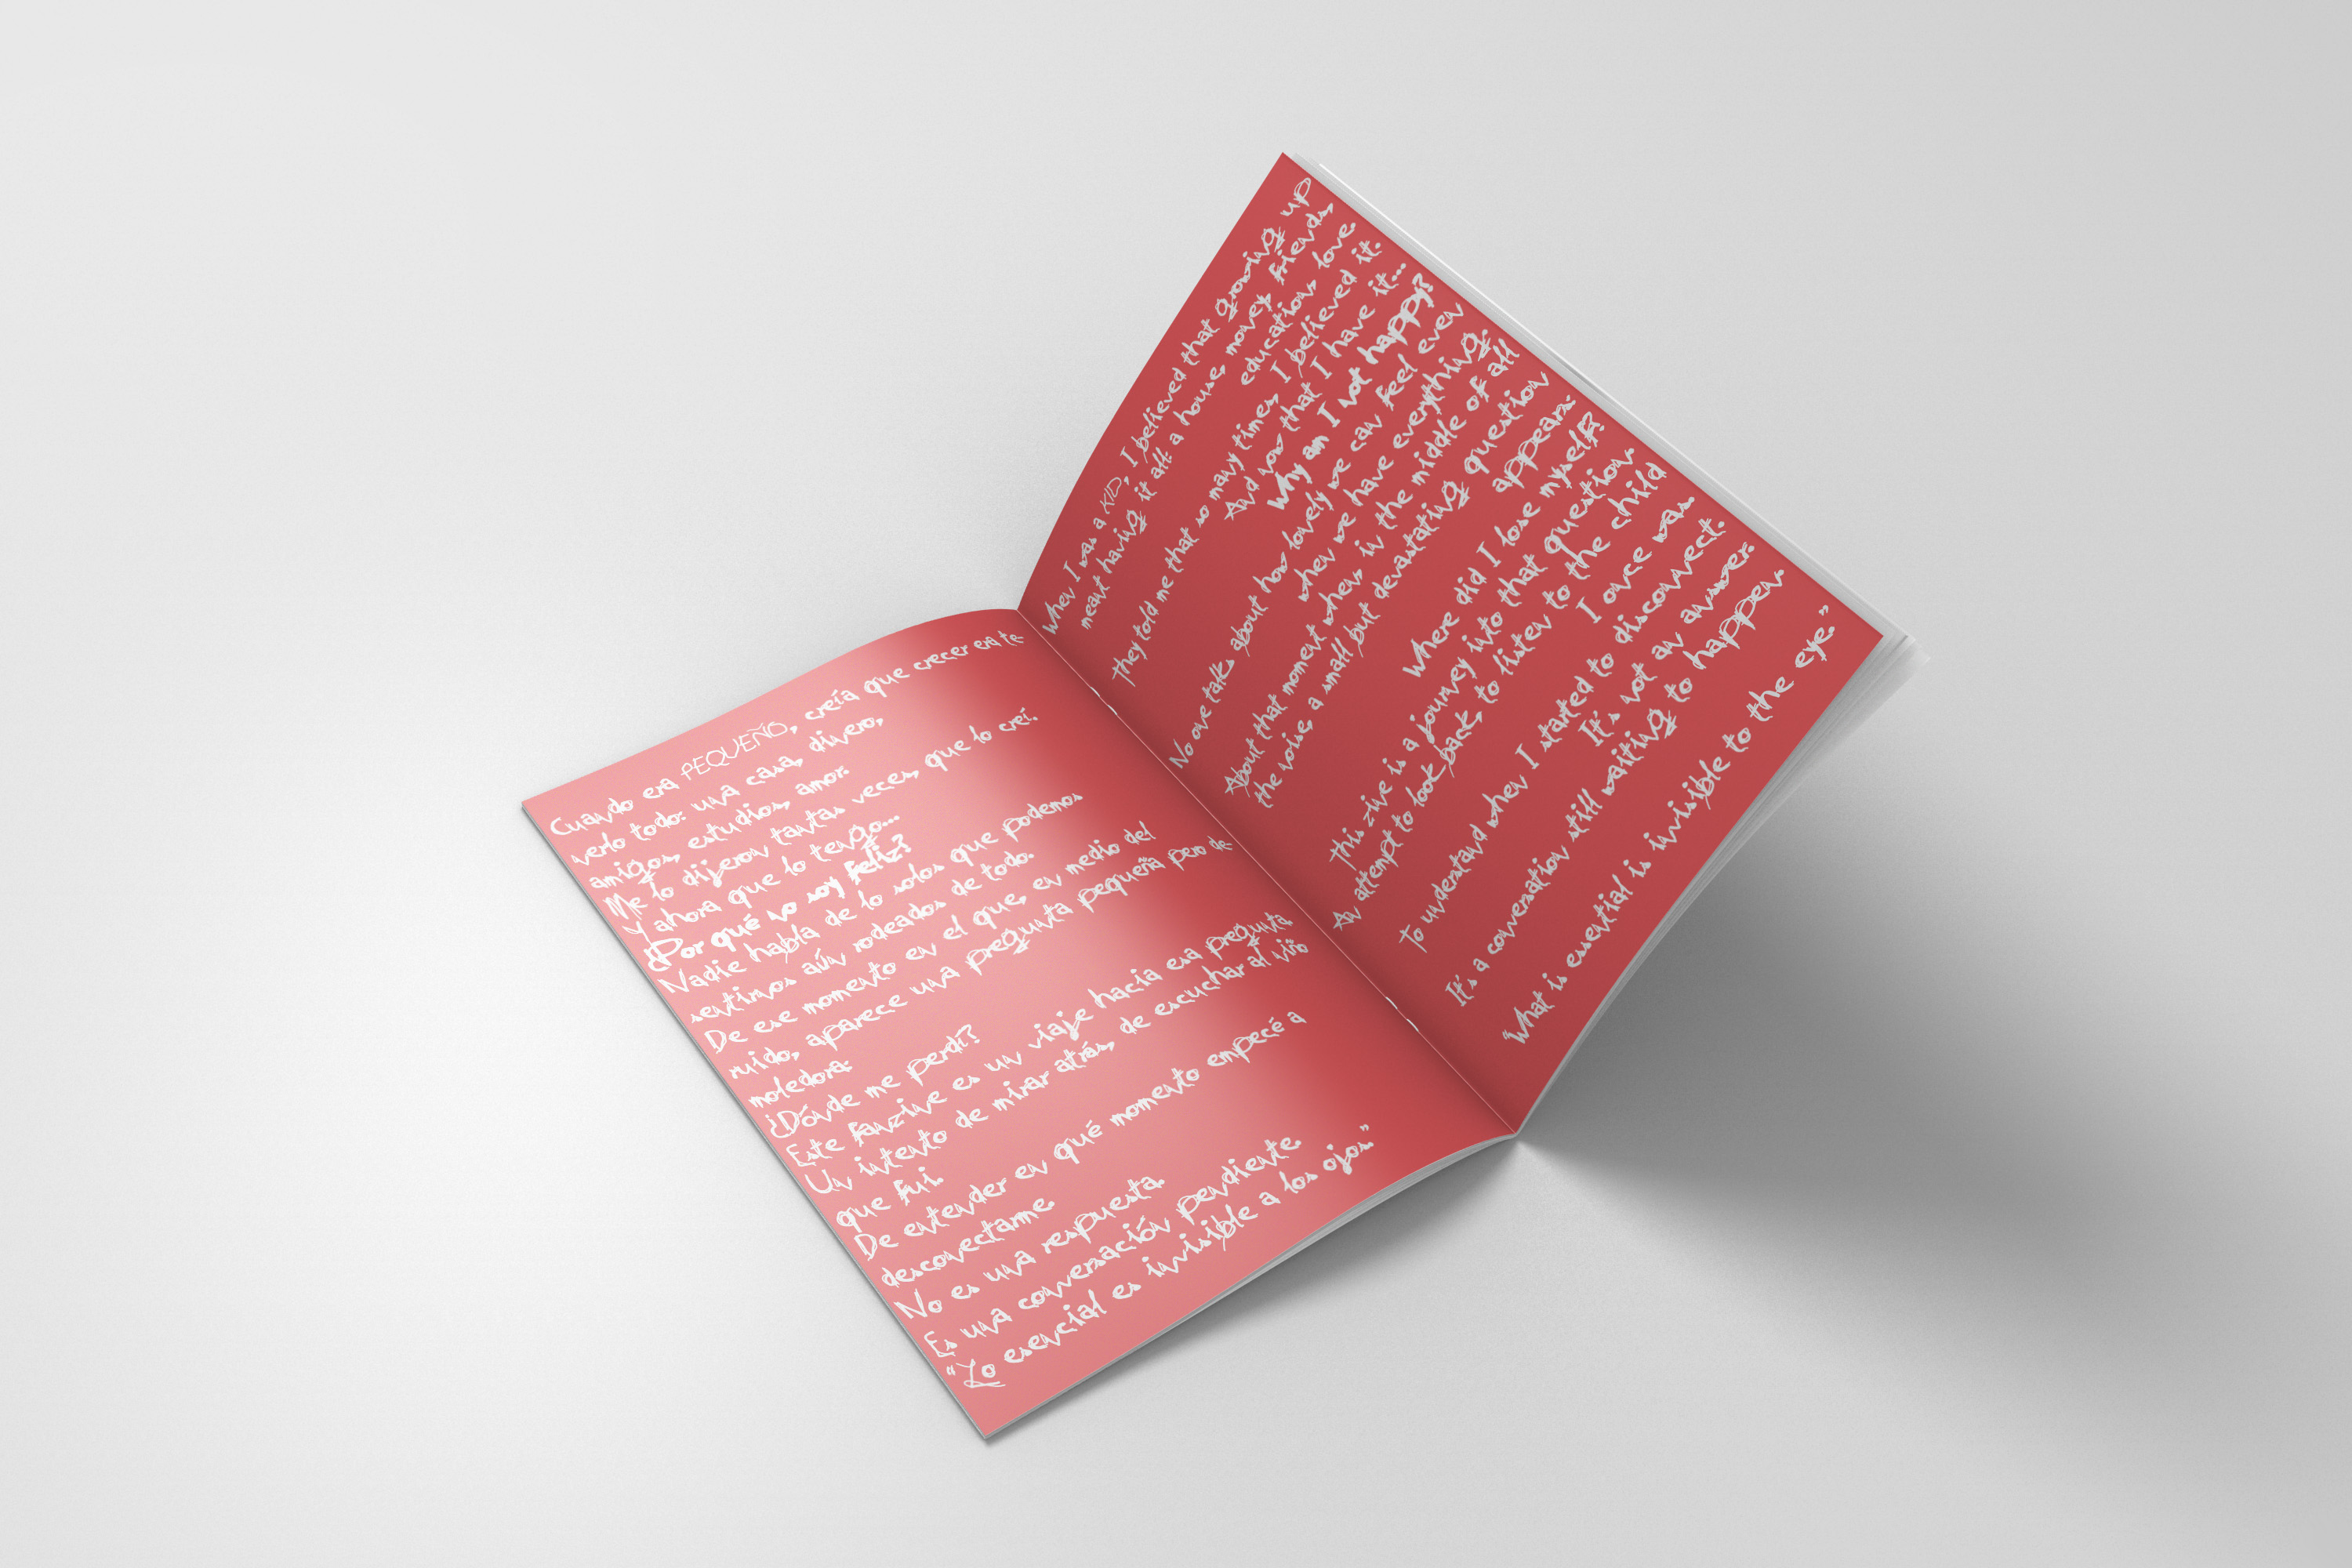 Cuando era PEQUEÑO, creía que crecer era te-
nerlo todo: una casa, dinero,
amigos, estudios, amor.
Me lo dijeron tantas veces, que lo creí.
Y ahora que lo tengo...
¿Por qué no soy feliz?
Nadie habla de lo solos que podemos
sentirnos aún rodeados de todo.
De ese momento en el que, en medio del
ruido, aparece una pregunta pequeña pero de-
moledora:
¿Dónde me perdí?
Este fanzine es un viaje hacia esa pregunta
Un intento de mirar atrás, de escuchar al niño
que fui.
De entender en qué momento empecé a
desconectarme.
No es una respuesta.
Es una conversación pendiente.
"Lo esencial es invisible a los ojos."
When I was a KID, I believed that growing up
meant having it all: a house, money, friends,
education, love.
They told me that so many times, I believed it.
And now that I have it...
Why am I not happy?
No one talks about how lonely we can feel even
when we have everything.
About that moment when, in the middle of all
the noise, a small but devastating question
appears:
Where did I lose myself?
This zine is a journey into that question.
An attempt to look back, to listen to the child
I once was
To understand when I started to disconnect.
It's not an answer.
It's a conversation still waiting to happen.
"What is essential is invisible to the eye."